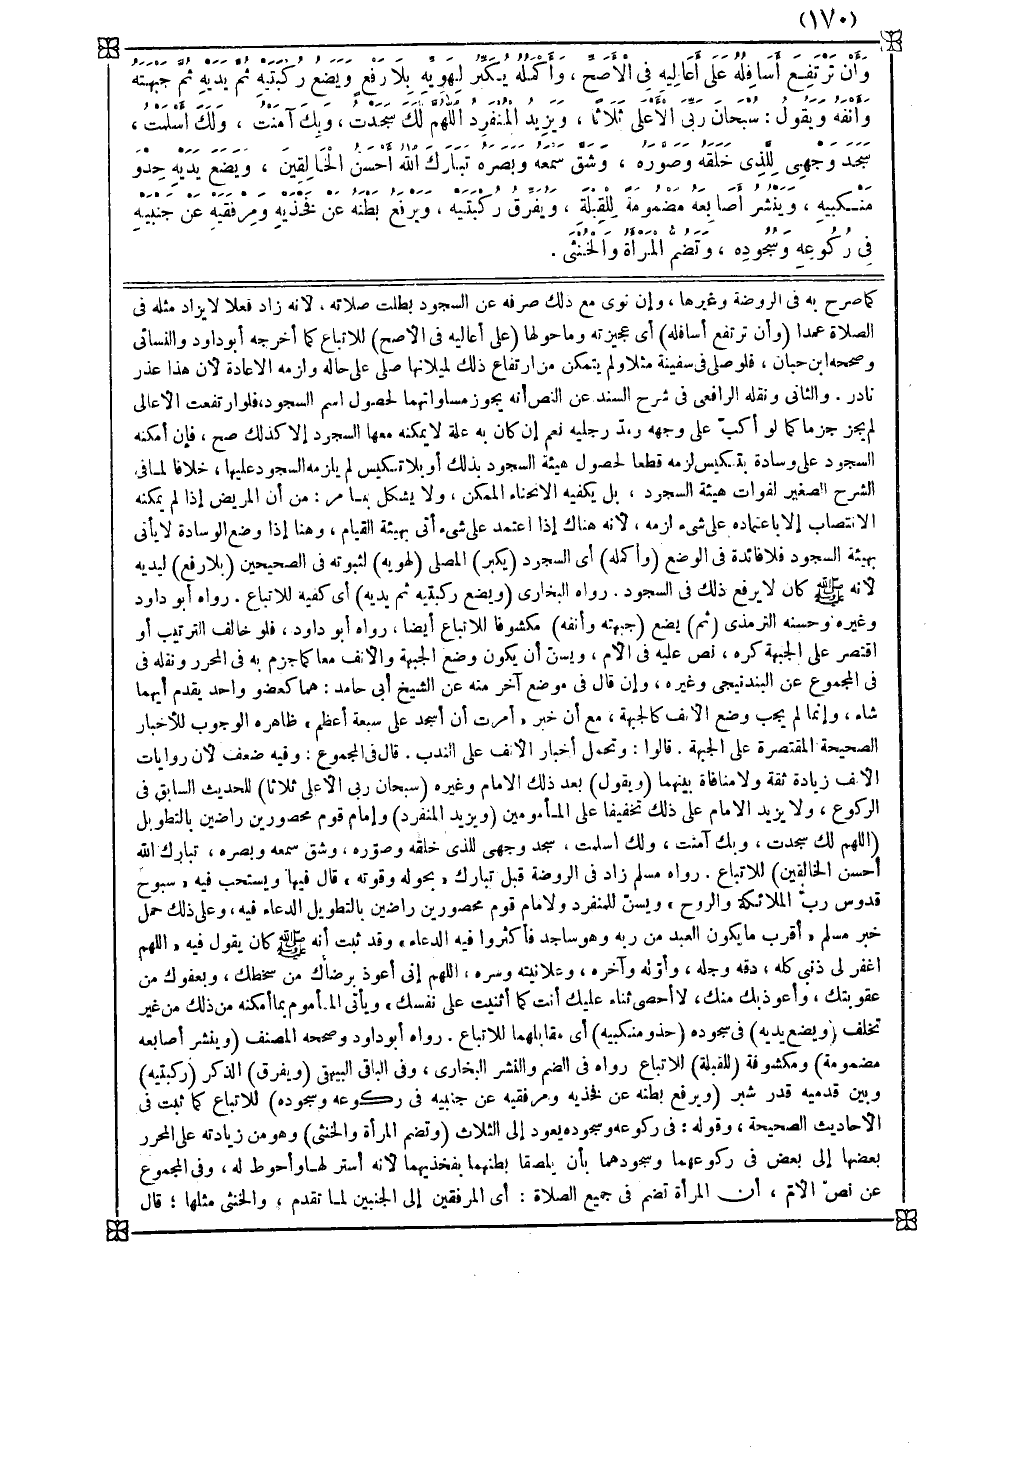 (١٧٠)
وَأَنْ تَرْتَفِعَ أَسَافِلُهُ عَلَى أَعَالِيهِ فِى الْأَصَحِّ ، وَأَكْمَلُهُ يُكَبِّرُ لِهُوِيِّهِ بِلَا رَفْعٍ وَيَضَعُ رُكْبَتَيْهِ ثُمَّ يَدَيْهِ ثُمَّ جَبْهَتَهُ
وَأَنْفَهُ وَيَقُولُ : سُبْحَانَ رَبِّىَ الْأَعْلَى ثَلَاثًا ، وَيَزِيدُ الْمُنْفَرِدُ اللَّهُمَّ لَكَ سَجَدْتُ ، وَبِكَ آمَنْتُ ، وَلَكَ أَسْلَمْتُ ،
سَجَدَ وَجْهِى لِلَّذِى خَلَقَهُ وَصَوَّرَهُ ، وَشَقَّ سَمْعَهُ وَبَصَرَهُ تَبَارَكَ اللَّهُ أَحْسَنُ الْخَالِقِينَ ، وَيَضَعُ يَدَيْهِ حَذْوَ
مَنْكِبَيْهِ ، وَيَنْشُرُ أَصَابِعَهُ مَضْمُومَةً لِلْقِبْلَةِ ، وَيُفَرِّقُ رُكْبَتَيْهِ ، وَيَرْفَعُ بَطْنَهُ عَنْ فَخِذَيْهِ وَمِرْفَقَيْهِ عَنْ جَنْبَيْهِ
فِى رُكُوعِهِ وَسُجُودِهِ ، وَتَضُمُّ الْمَرْأَةُ وَالْخُنْثَى .
كما صرح به فى الروضة وغيرها ، وإن نوى مع ذلك صرفه عن السجود بطلت صلاته ، لأنه زاد فعلا لا يزاد مثله فى
الصلاة عمدا (وأن ترتفع أسافله) أى عجيزته وماحولها (على أعاليه فى الأصح) للاتباع كما أخرجه أبو داود والنسائى
وصححه ابن حبان ، فلو صلى فى سفينة مثلا ولم يتمكن من ارتفاع ذلك لميلانها صلى على حاله ولزمه الاعادة لأن هذا عذر
نادر . والثانى ونقله الرافعى فى شرح السند عن النص أنه يجوز مساواتهما لحصول اسم السجود ، فلو ارتفعت الأعالى
لم يجز جزما كما لو أكبّ على وجهه ومدّ رجليه نعم إن كان به علة لا يمكنه معها السجود إلا كذلك صح ، فإن أمكنه
السجود على وسادة بتنكيس لزمه قطعا لحصول هيئة السجود بذلك أو بلا تنكيس لم يلزمه السجود عليها ، خلافا لما فى
الشرح الصغير لفوات هيئة السجود ، بل يكفيه الانحناء الممكن ، ولا يشكل بما مر : من أن المريض إذا لم يمكنه
الانتصاب إلا باعتماده على شىء لزمه ، لأنه هناك إذا اعتمد على شىء أتى بهيئة القيام ، وهنا إذا وضع الوسادة لا يأتى
بهيئة السجود فلا فائدة فى الوضع (وأكمله) أى السجود (يكبر) المصلى (لهويه) لثبوته فى الصحيحين (بلا رفع) ليديه
لأنه ﷺ كان لا يرفع ذلك فى السجود . رواه البخارى (ويضع ركبتيه ثم يديه) أى كفيه للاتباع . رواه أبو داود
وغيره وحسنه الترمذى (ثم) يضع (جبهته وأنفه) مكشوفا للاتباع أيضا ، رواه أبو داود ، فلو خالف الترتيب أو
اقتصر على الجبهة كره ، نص عليه فى الأم ، ويسنّ أن يكون وضع الجبهة والأنف معا كما جزم به فى المحرر ونقله فى
فى المجموع عن البندنيجى وغيره ، وإن قال فى موضع آخر منه عن الشيخ أبى حامد : هما كعضو واحد يقدم أيهما
شاء ، وإنما لم يجب وضع الأنف كالجبهة ، مع أن خبر « أمرت أن أسجد على سبعة أعظم » ظاهره الوجوب للأخبار
الصحيحة المقتصرة على الجبهة . قالوا : وتحمل أخبار الأنف على الندب . قال فى المجموع : وفيه ضعف لأن روايات
الأنف زيادة ثقة ولا منافاة بينهما (ويقول) بعد ذلك الامام وغيره (سبحان ربى الأعلى ثلاثا) للحديث السابق فى
الركوع ، ولا يزيد الامام على ذلك تخفيفا على المأمومين (ويزيد المنفرد) وإمام قوم محصورين راضين بالتطويل
(اللهم لك سجدت ، وبك آمنت ، ولك أسلمت ، سجد وجهى للذى خلقه وصوّره ، وشق سمعه وبصره ، تبارك الله
أحسن الخالقين) للاتباع . رواه مسلم زاد فى الروضة قبل تبارك « بحوله وقوته » قال فيها ويستحب فيه « سبوح
قدوس ربّ الملائكة والروح » ويسنّ للمنفرد ولامام قوم محصورين راضين بالتطويل الدعاء فيه ، وعلى ذلك حمل
خبر مسلم « أقرب ما يكون العبد من ربه وهو ساجد فأكثروا فيه الدعاء » وقد ثبت أنه ﷺ كان يقول فيه « اللهم
اغفر لى ذنبى كله ، دقه وجله ، وأوّله وآخره ، وعلانيته وسره ، اللهم إنى أعوذ برضاك من سخطك ، وبعفوك من
عقوبتك ، وأعوذ بك منك ، لا أحصى ثناء عليك أنت كما أثنيت على نفسك » ويأتى المأموم بما أمكنه من ذلك من غير
تخلف (ويضع يديه) فى سجوده (حذو منكبيه) أى مقابلهما للاتباع . رواه أبو داود وصححه المصنف (وينشر أصابعه
مضمومة) ومكشوفة (للقبلة) للاتباع رواه فى الضم والنشر البخارى ، وفى الباقى البيهقى (ويفرق) الذكر (ركبتيه)
وبين قدميه قدر شبر (ويرفع بطنه عن فخذيه ومرفقيه عن جنبيه فى ركوعه وسجوده) للاتباع كما ثبت فى
الأحاديث الصحيحة ، وقوله : فى ركوعه وسجوده يعود إلى الثلاث (وتضم المرأة والخنثى) وهو من زيادته على المحرر
بعضها إلى بعض فى ركوعهما وسجودهما بأن يلصقا بطنهما بفخذيهما لأنه أستر لها وأحوط له ، وفى المجموع
عن نصّ الأمّ ، أن المرأة تضم فى جميع الصلاة : أى المرفقين إلى الجنبين لما تقدم ، والخنثى مثلها ؛ قال